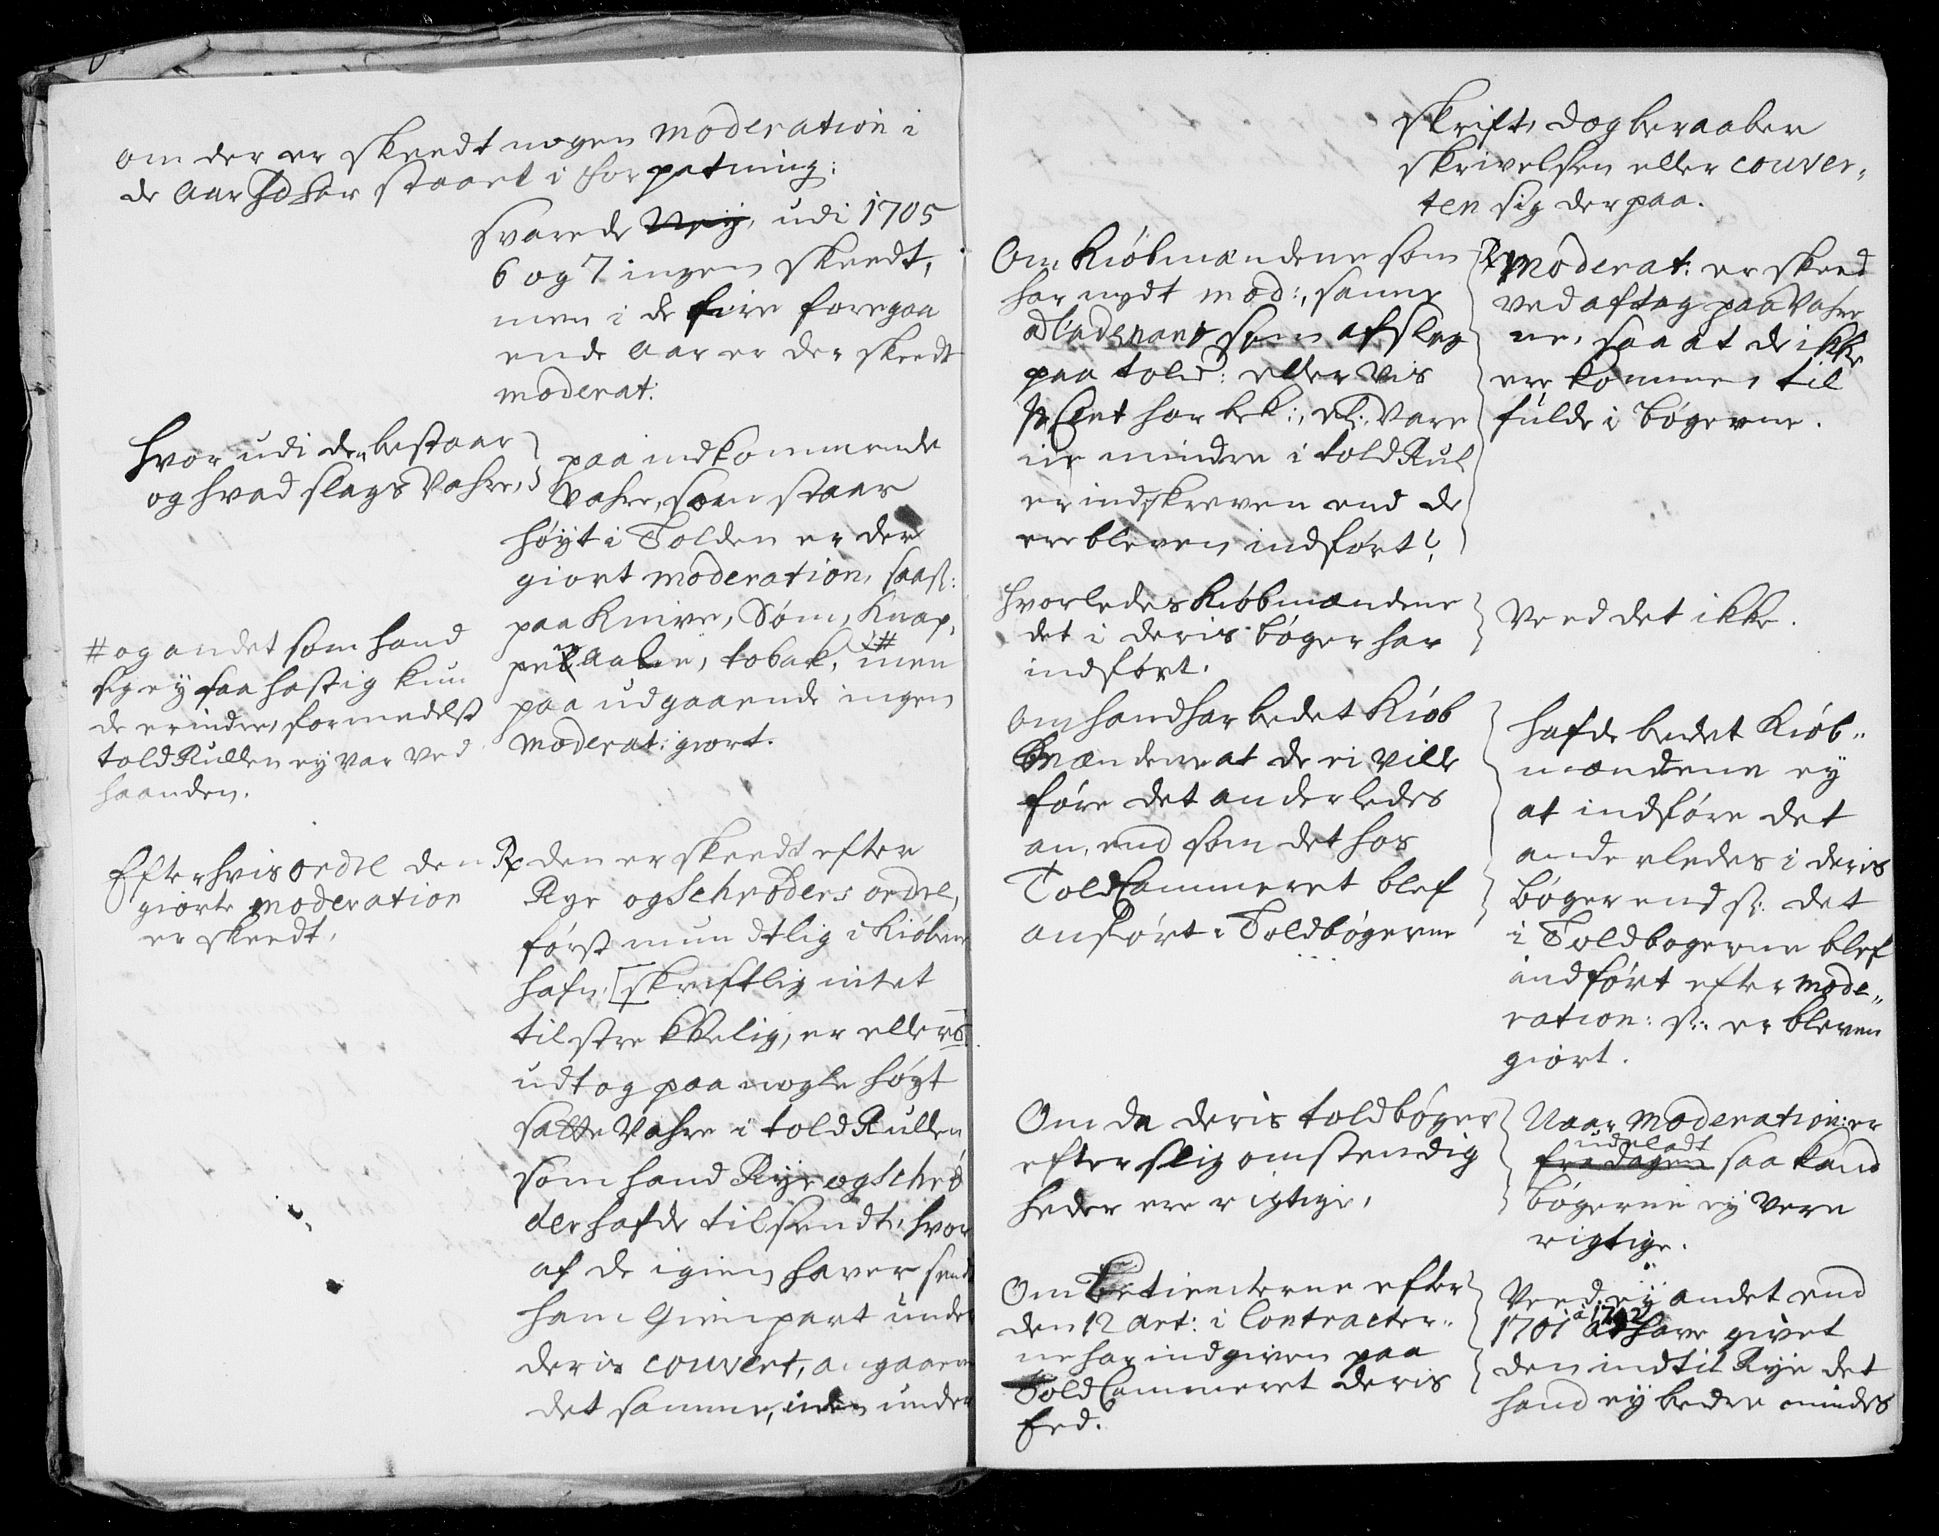 om der er skeedt nogen moderation i
de Aar hd har staaet i forpatning:
svarede Nej, udi 1705
6 og 7 ingen skeedt,
men i de fire foregaa
ende Aar er der skeedt
moderat:
Hvor udi den bestaar
og hvad slags Vahre,
paa indkommende
Vahre, som staar
høyt i Tolden er der
giort moderation, saas:
paa Knive, Søm, Knap,
penaale, tobak, # men
paa udgaaende ingen
moderat: giort.
# og andet som hand
sig ey saa hastig kun
de erindre, formedelst
told Rullen ey var ved
haanden.
Efter hvis ordre den
giorte moderation
er skeedt,
Rx den er skeedt efter
Rye og Schrøders ordre,
først mundtlig i Kiøben
hafn, [skriftlig intet
tilstrekkelig, er ellers
udtog paa nogle høyt
satte Vahre i told Rullen
som hand Rye og Schrø
der hafde tilsendt, hvor
af de igien haver sendt
ham Gienpart under
deris couvert, angaaen
det samme, uden under
skrift, dog beraaber
skrivelsen eller couver„
ten sig der paa.
Om Kiøbmændene som
har nydt mod:, samme
som afslag
paa told: eller vis
p Cent har bek:, el: Vare
ne mindre i told Rul
er indskreven end de
ere bleven indført?
Rx Moderat: er skeed
ved aftag paa Vahre
ne, saa at de ikke
ere kommen til
fulde i bøgerne.
Hvorledes Kiøbmændene
det i deris bøger har
indført.
Veed det ikke.
Om hand har bedet Kiøb
mændene at de ei ville
føre det anderledes
an, end som det hos
Told Cammeret blef
anført i Toldbøgerne
hafde bedet Kiøb„
mændene ey
at indføre det
anderledes i deris
bøger end s: det
i Toldbogerne blef
indført efter mode„
ration: s: er bleven
giort.
Om da deris toldbøger
efter slig omstendig
heder ere rigtige,
Naar Moderation: er
udeladt
fradagen saa kand
bøgerne ey vere
rigtige.
Om Betienterne efter
den 12 Art: i Contracter„
ne har indgiven paa
Told Cammeret deris
Eed.
Veed ey andet end
1701 à 1702 at have givet
den indtil Rye det
hand ey bedre mindes